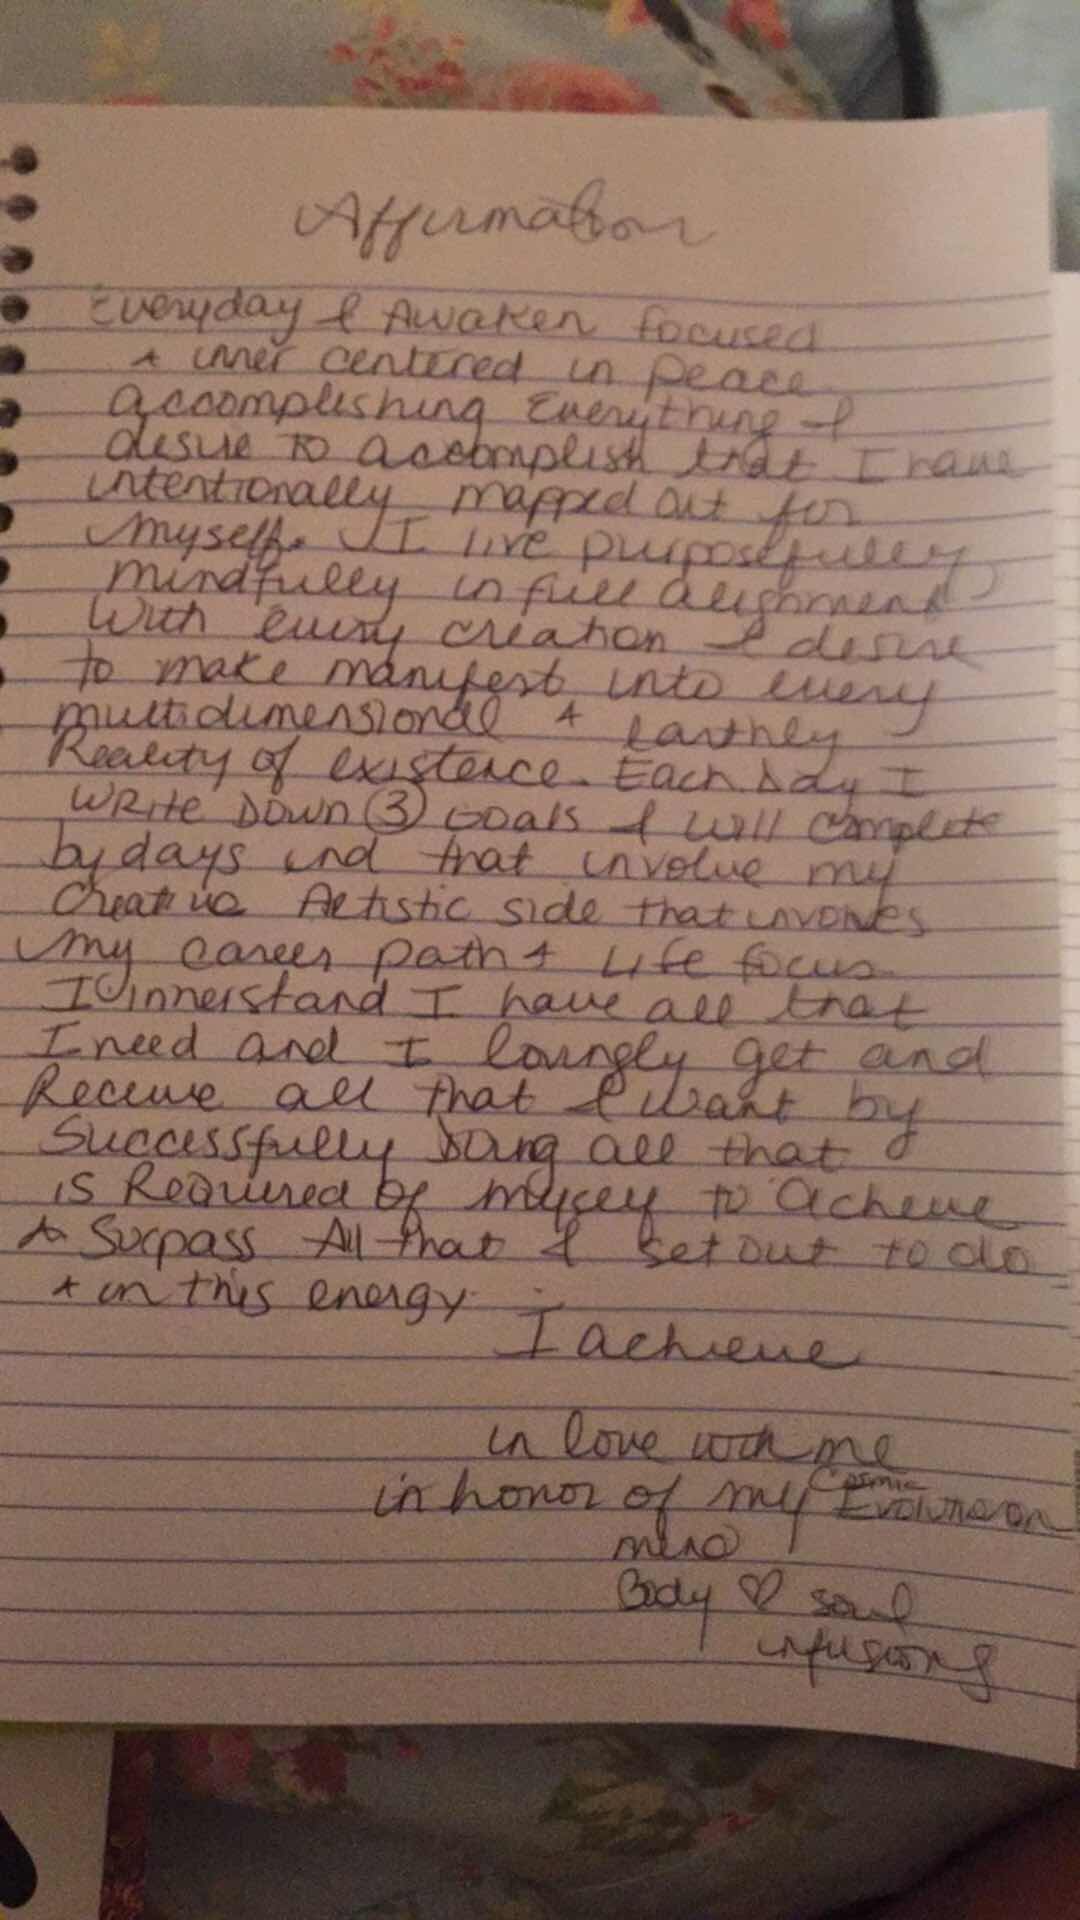 Affirmation
Everyday I Awaken focused
+ inner centered in peace
accomplishing Everything I
desire to accomplish that I have
intentionally mapped out for
myself. I live purposefully
mindfully in full alignment
with every creation I desire
to make manifest into every
multidimensional + Earthly
Reality of existence. Each Day I
Write Down ③ Goals I will complete
by days end that involve my
Creative Artistic side that involves
my career path + Life focus
I innerstand I have all that
I need and I lovingly get and
Receive all that I want by
Successfully Doing all that
is Required of myself to achieve
+ Surpass All that I set out to do
+ in this energy
I achieve
in love with me
in honor of my Cosmic Evolution
mind
Body ♡ soul
infusions